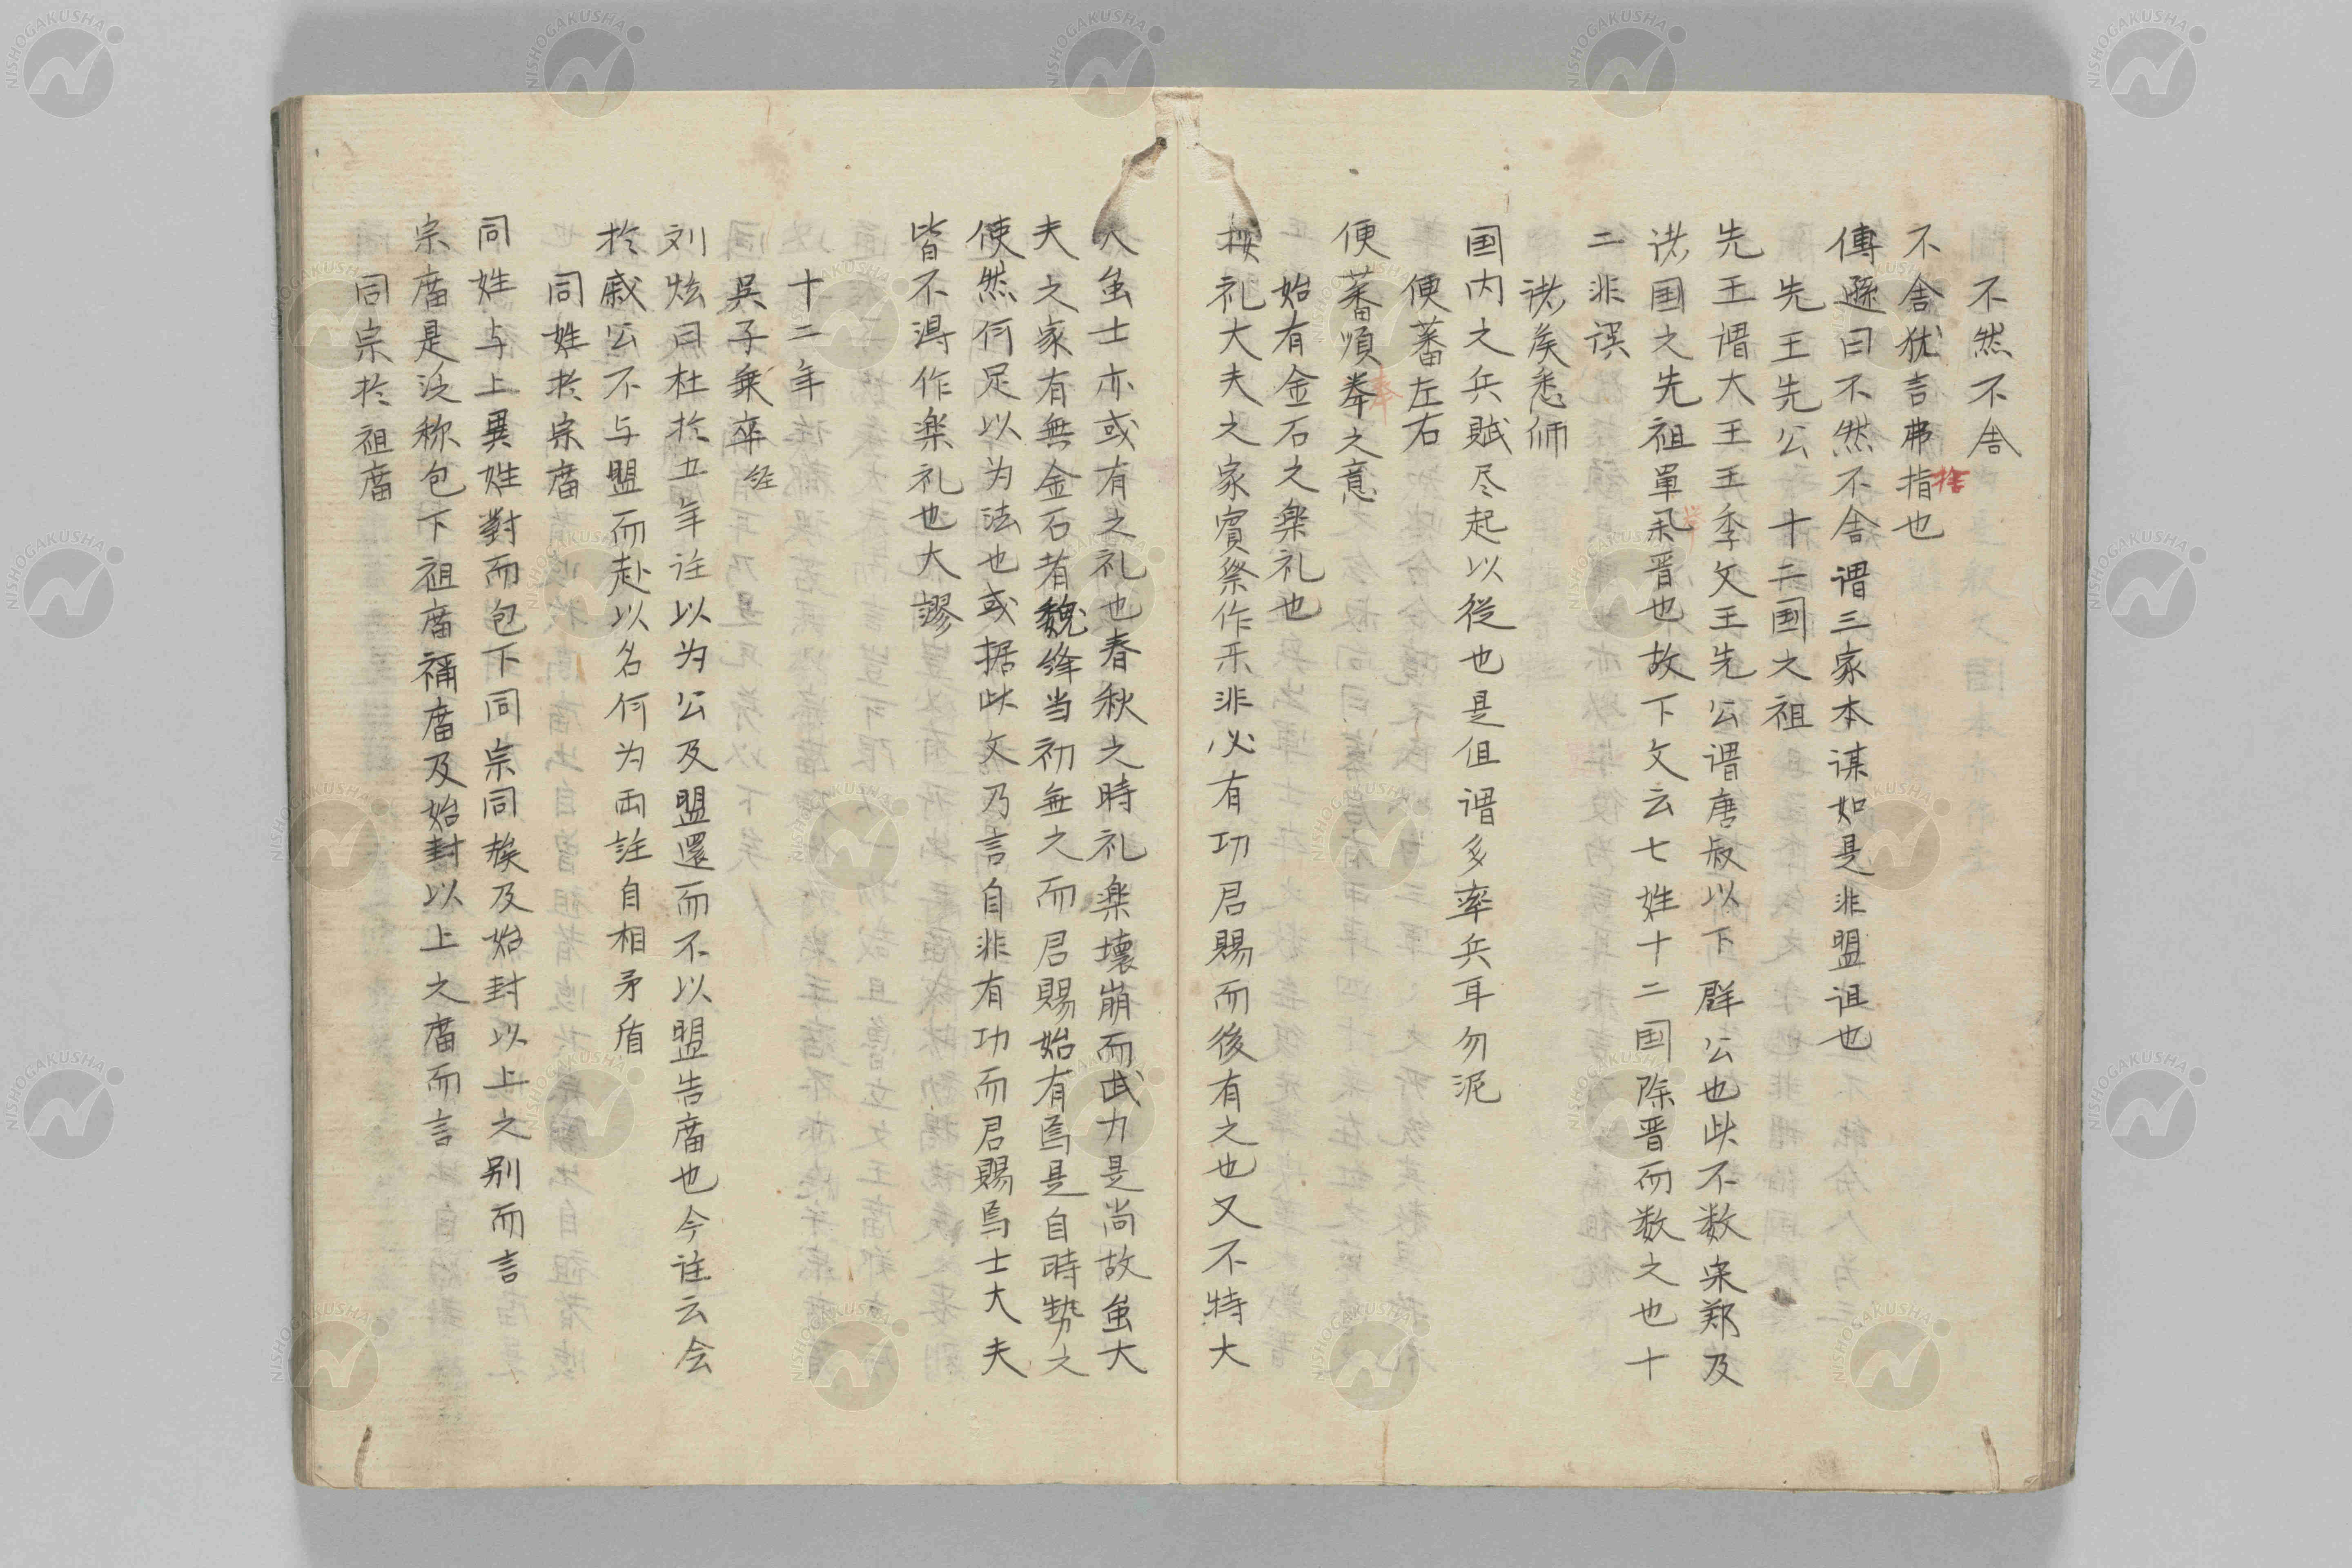 不然不舎
不舎犹言弗指也
捨
傳遜曰不然不舎谓三家本谋如是非盟诅也
先王先公 十二国之祖
先王谓大王王季文王先公谓唐叔以下群公也此不数宋郑及
诸国之先祖单承晋也故下文云七姓十二国除晋而数之也十
二非误
诸矦悉师
国内之兵賦尽起以従也是但谓多率兵耳勿泥
便蕃左右
便蕃順奉之意
始有金石之楽礼也
按礼大夫之家賓祭作乐非必有功君賜而後有之也又不特大
人虽士亦或有之礼也春秋之時礼楽壊崩而武力是尚故虽大
夫之家有無金石者魏绛当初無之而君賜始有焉是自時勢之
使然何足以为法也或据此文乃言自非有功而君賜焉士大夫
皆不得作楽礼也大謬
十二年
吳子乗卒 経
刘炫曰杜於五年注以为公及盟還而不以盟告庿也今注云会
於戚公不与盟而赴以名何为両註自相矛盾
同姓於宗庿
同姓与上異姓對而包下同宗同族及始封以上之别而言
宗庿是泛称包下祖庿禰庿及始封以上之庿而言
同宗於祖庿
NISHOGAKUSHA